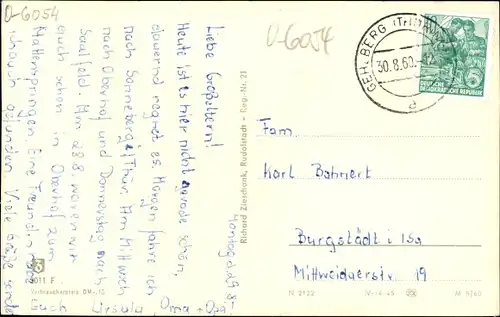 O-6054
O-6054
Montag d. 29.8.
Liebe Großeltern!
Heute ist es hier nicht gerade schön,
dauernd regnet es. Morgen fahre ich
nach Sonneberg/Thür. Am Mittwoch
nach Oberhof und Donnerstag nach
Saalfeld. Am 28.8. waren wir
auch schon in Oberhof zum
Mattenspringen. Eine Freundin habe
ich auch gefunden. Viele Grüße sendet
Euch Ursula Oma + Opa!
Richard Zieschank, Rudolstadt - Reg.-Nr. 21
GEHLBERG (THÜR)
30.8.60
d
DEUTSCHE
DEMOKRATISCHE REPUBLIK
Fam.
Karl Bahnert
Burgstädt i/Sa
Mittweidaerstr. 19
Verbraucherpreis DM
M 9/60